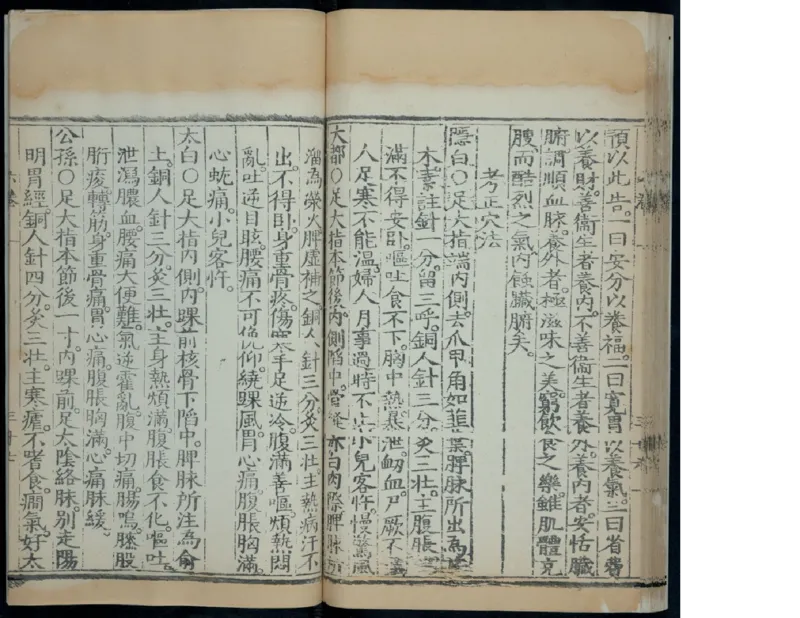 預以此告。一曰安分以養福。二曰寬胃以養氣。三曰省費
以養財。善衞生者養內。不善衞生者養外。養內者。安恬臟
腑。調順血脉。養外者。極滋味之美。窮飲食之樂。雖肌體充
腴。而酷烈之氣。內蝕臟腑矣。
考正穴法
隱白○足大指端內側。去爪甲角如韭葉。脾脉所出為
木。素註針一分。留三呼。銅人針三分。灸三壯。主腹脹
滿不得安臥。嘔吐食不下。胸中熱。暴泄。衂血。尸厥不識
人。足寒不能溫。婦人月事過時不止。小兒客忤。慢驚風
大都○足大指本節後。內側陷中。白肉際。脾脉所
溜為滎火。脾虛補之。銅人針三分。灸三壯。主熱病汗不
出。不得臥。身重骨疼。傷寒手足逆冷。腹滿善嘔。煩熱悶
亂。吐逆目眩。腰痛不可俛仰。繞踝風。胃心痛。腹脹胸滿。
心蚘痛。小兒客忤。
太白○足大指內側。內踝前核骨下陷中。脾脉所注為俞
土。銅人針三分。灸三壯。主身熱煩滿。腹脹食不化。嘔吐。
泄瀉膿血。腰痛大便難。氣逆霍亂。腹中切痛。腸鳴。膝股
胻痠轉筋。身重骨痛。胃心痛。腹脹胸滿。心痛脉緩。
公孫○足大指本節後一寸。內踝前。足太陰絡脉。別走陽
明胃經。銅人針四分。灸三壯。主寒瘧。不嗜食。癇氣。好太